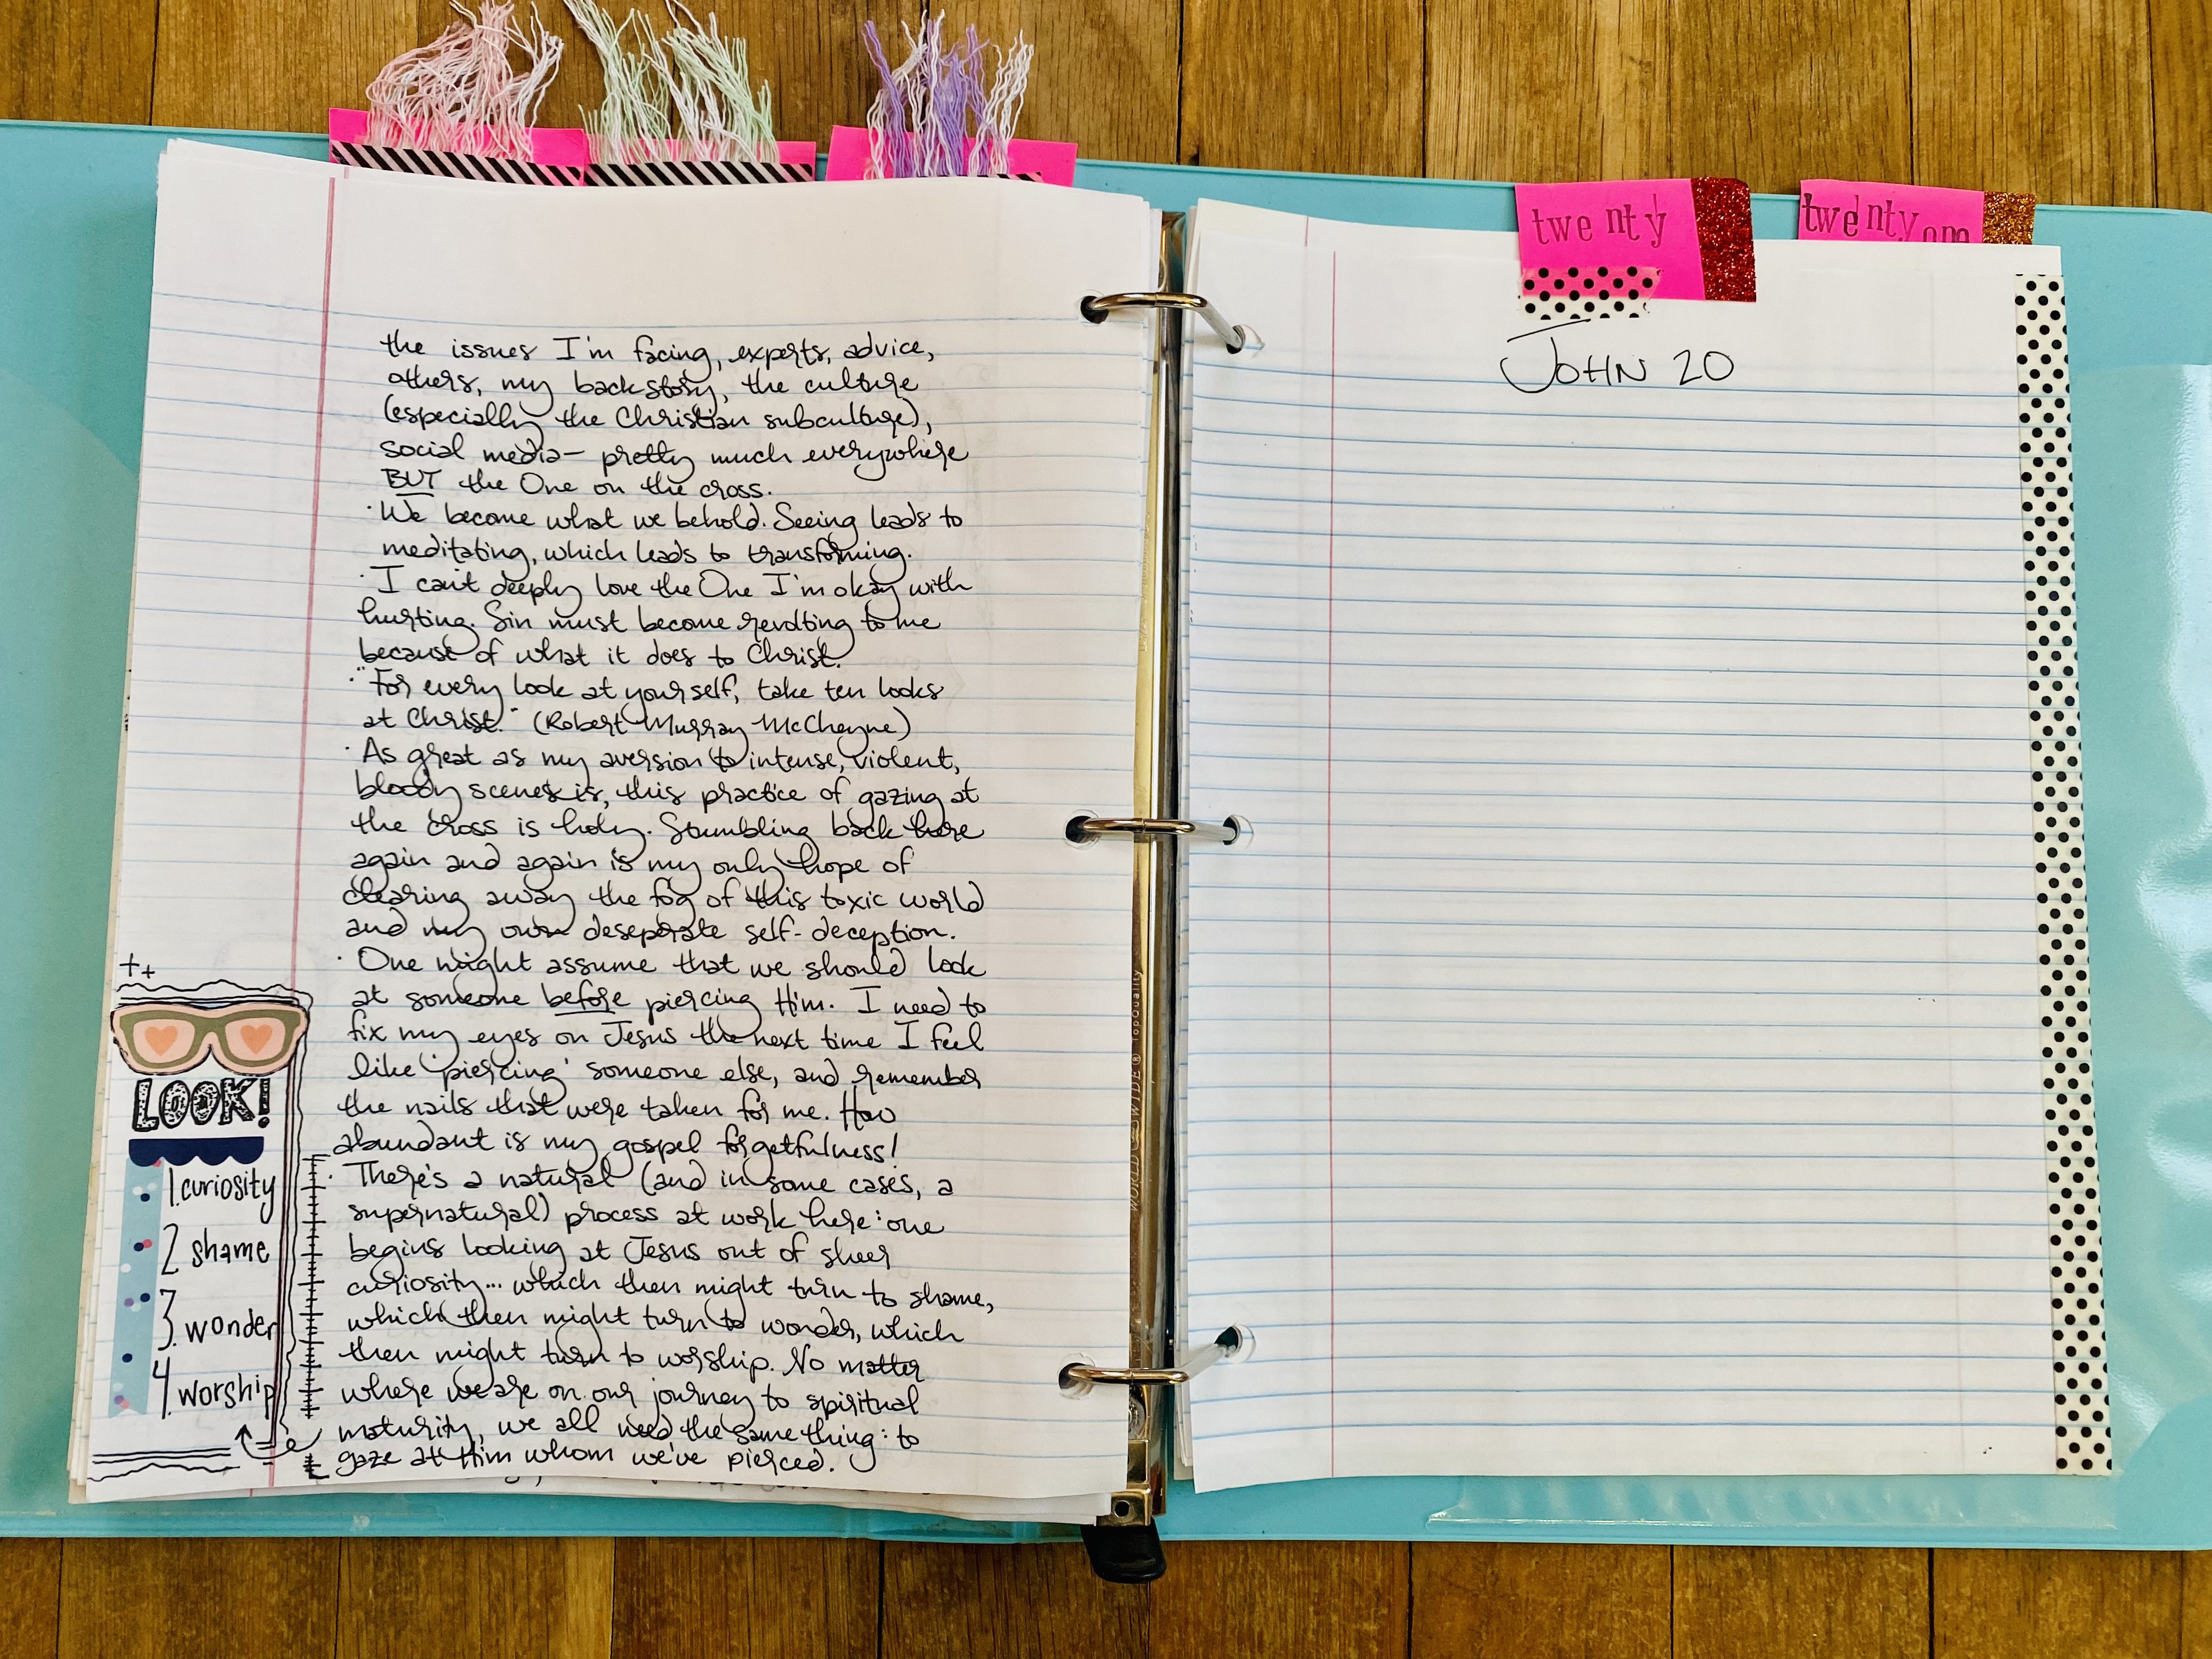 the issues I'm facing, experts, advice,
others, my backstory, the culture
(especially the Christian subculture),
social media— pretty much everywhere
BUT the One on the cross.
· We become what we behold. Seeing leads to
meditating, which leads to transforming.
· I can't deeply love the One I'm okay with
hurting. Sin must become revolting to me
because of what it does to Christ.
· "For every look at yourself, take ten looks
at Christ." (Robert Murray McCheyne)
· As great as my aversion to intense, violent,
bloody scenes is, this practice of gazing at
the cross is holy. Stumbling back here
again and again is my only hope of
clearing away the fog of this toxic world
and my own desperate self-deception.
· One might assume that we should look
at someone before piercing Him. I need to
fix my eyes on Jesus the next time I feel
like 'piercing' someone else, and remember
the nails that were taken for me. How
abundant is my gospel forgetfulness!
· There's a natural (and in some cases, a
supernatural) process at work here: one
begins looking at Jesus out of sheer
curiosity... which then might turn to shame,
which then might turn to wonder, which
then might turn to worship. No matter
where we are on our journey to spiritual
maturity, we all need the same thing: to
gaze at Him whom we've pierced.
LOOK!
1. curiosity
2 shame
3. wonder
4. worship
WORLD WIDE® TopQuality
twenty
twenty one
JOHN 20